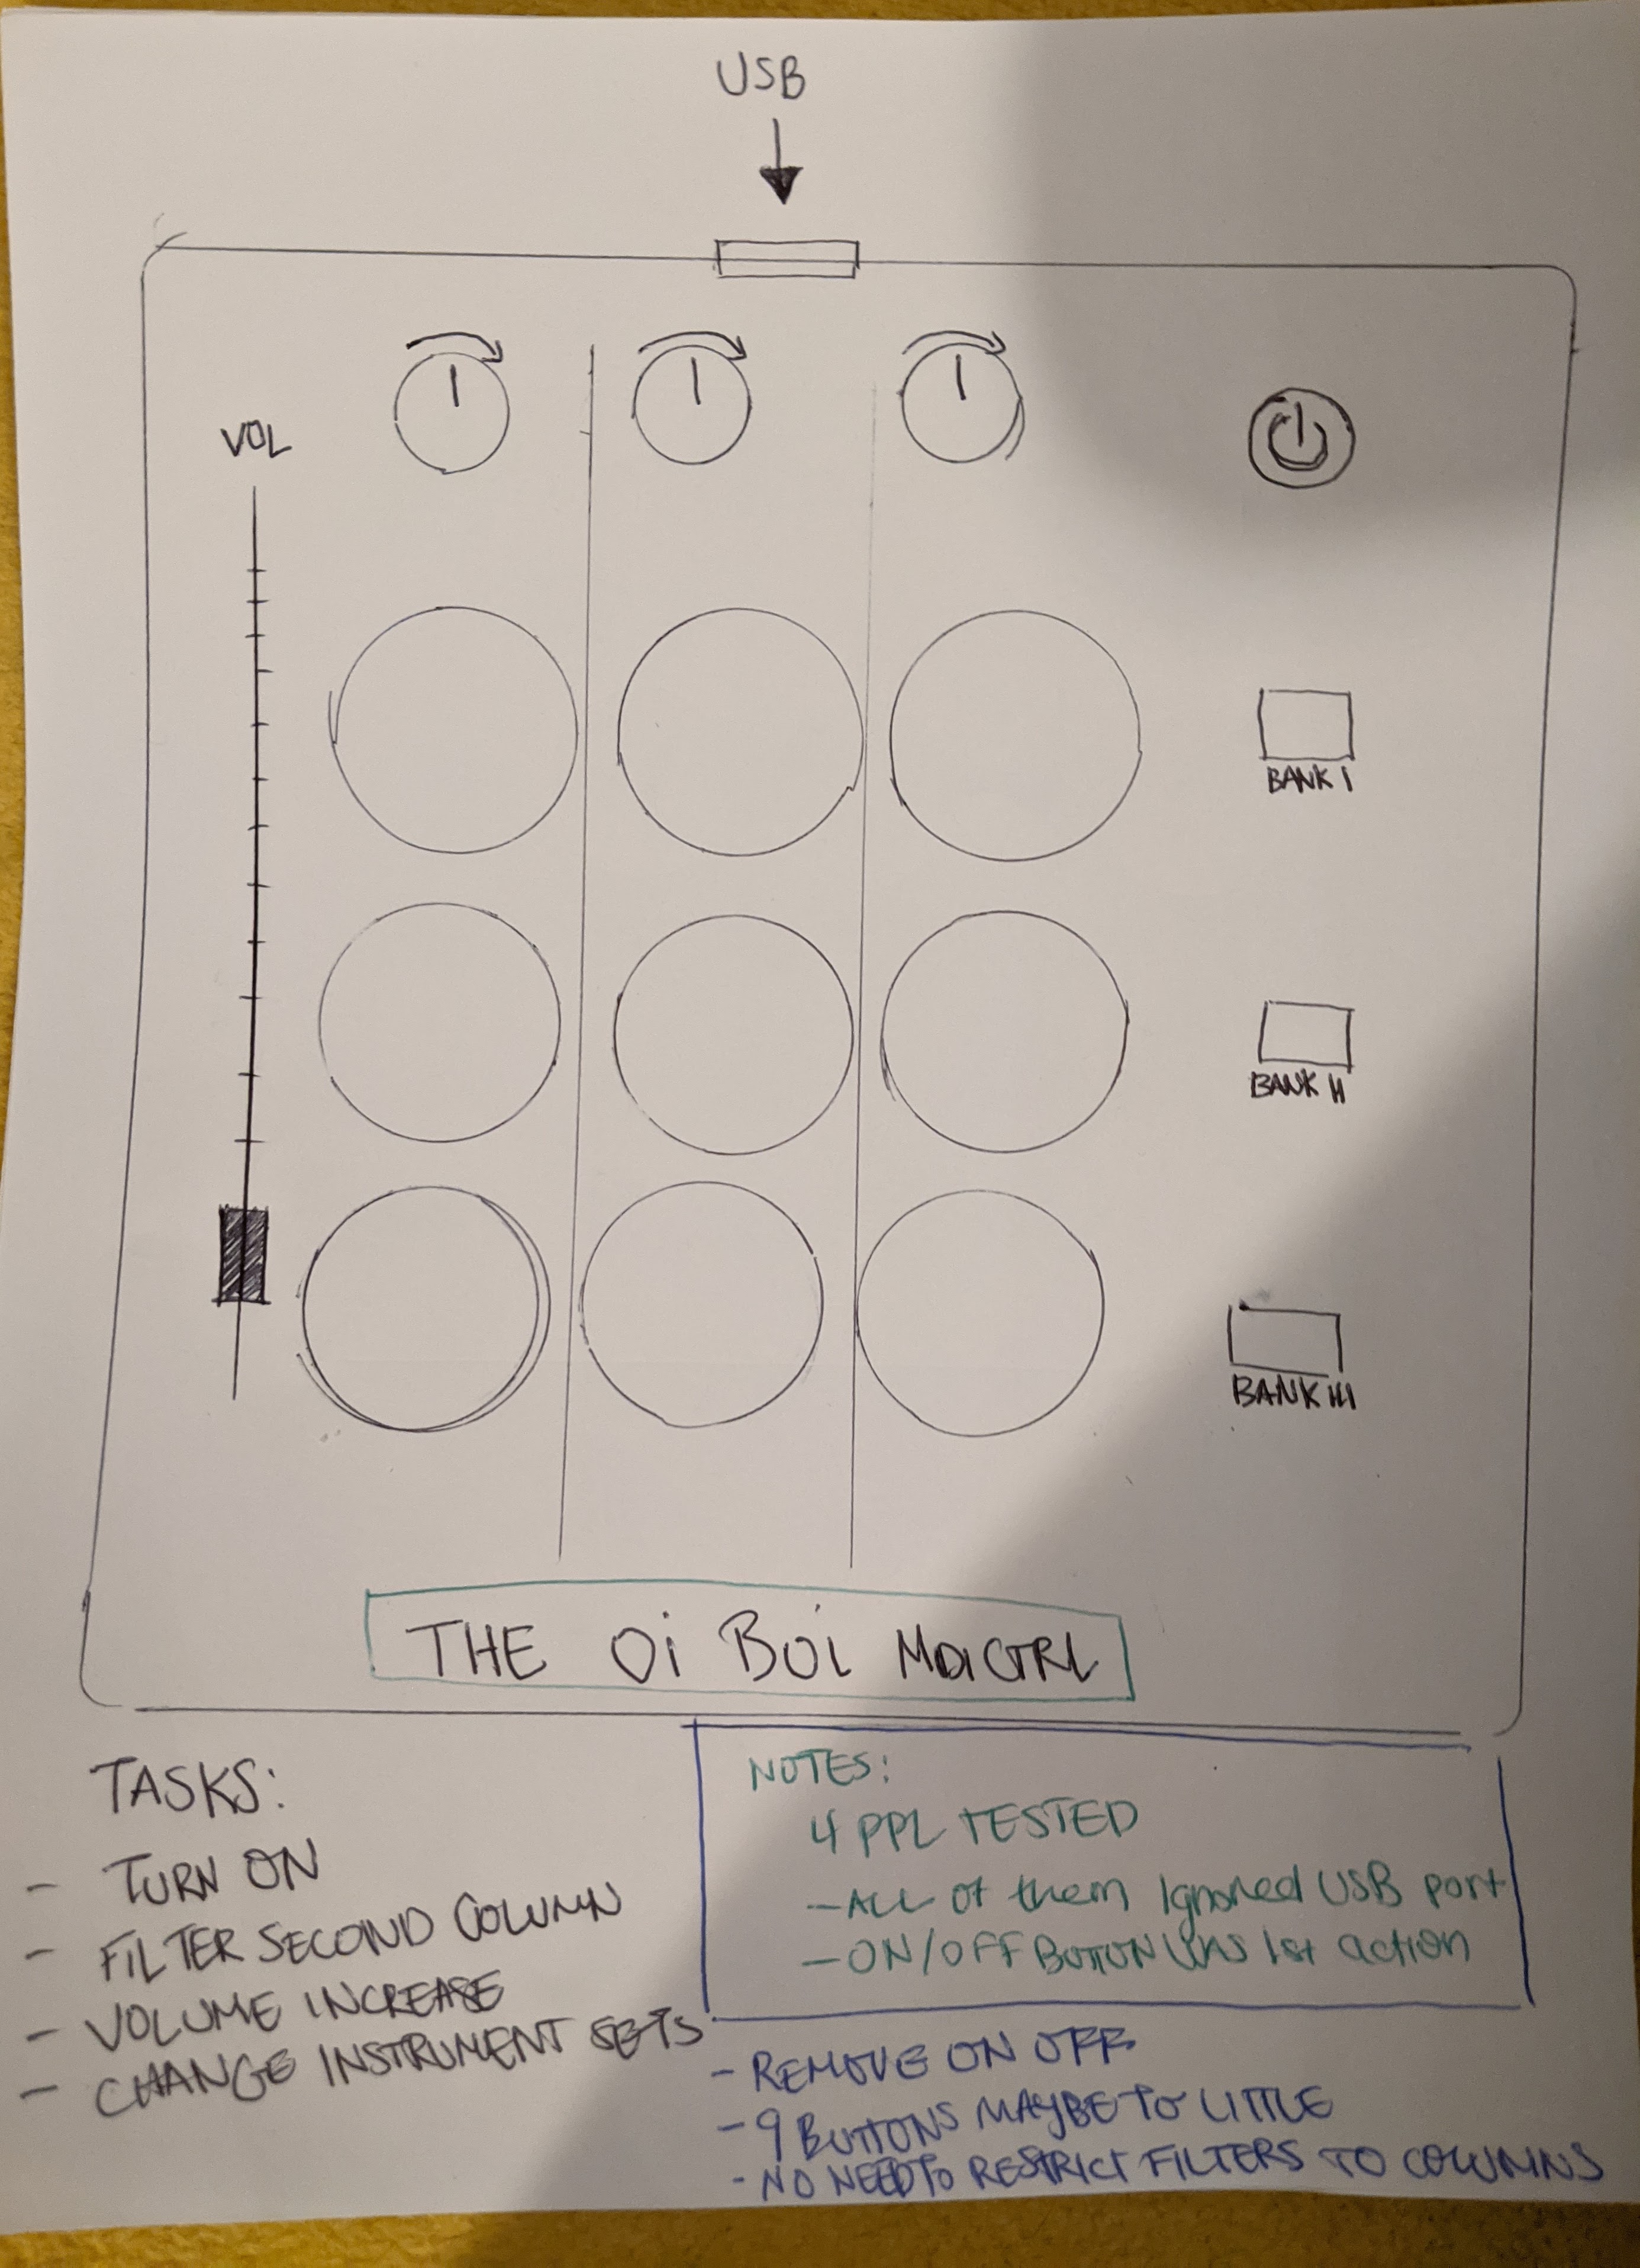 USB
VOL
BANK I
BANK II
BANK III
THE Oi Boi MIDICTRL
TASKS:
- TURN ON
- FILTER SECOND COLUMN
- VOLUME INCREASE
- CHANGE INSTRUMENT SETS
NOTES:
4 PPL TESTED
- ALL of them Ignored USB port
- ON/OFF BUTTON WAS 1st action
- REMOVE ON OFF
- 9 BUTTONS MAYBE TO LITTLE
- NO NEED TO RESTRICT FILTERS TO COLUMNS